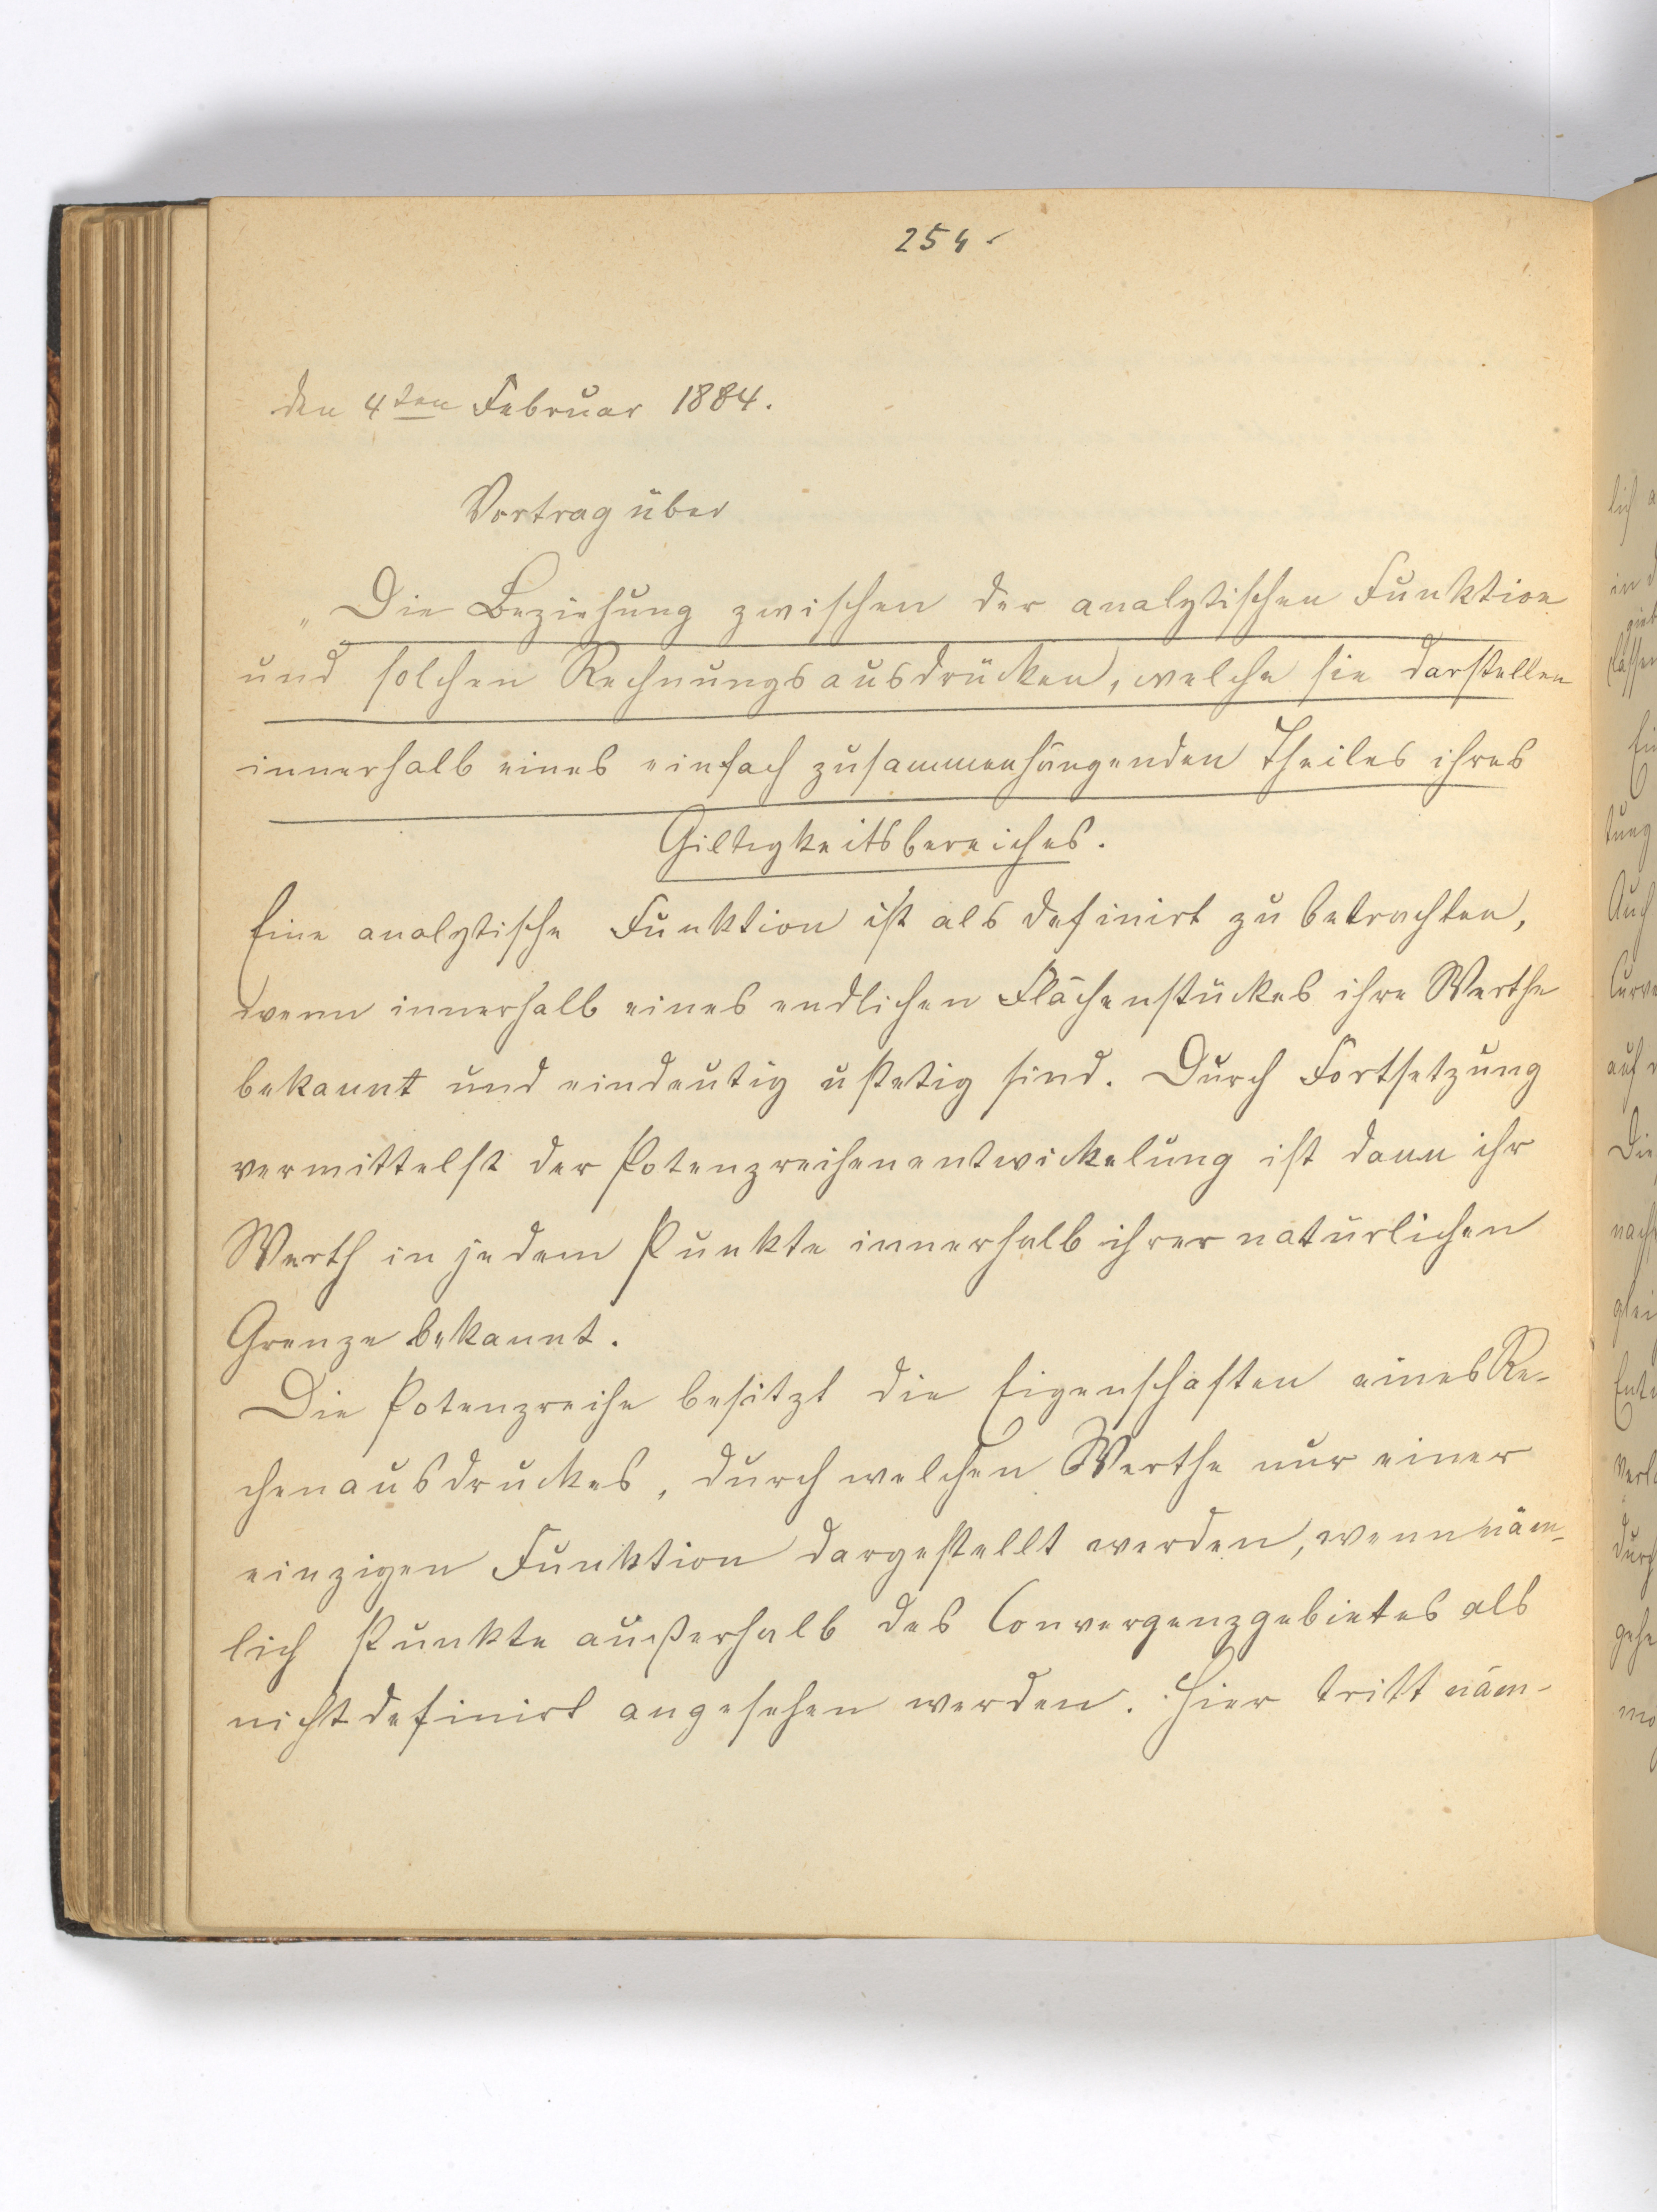 254.
den 4ten Februar 1884.
Vortrag über
„Die Beziehung zwischen der analytischen Funktion
und solchen Rechnungsausdrücken, welche sie darstellen
innerhalb eines einfach zusammenhängenden Theiles ihres
Giltigkeitsbereiches.
Eine analytische Funktion ist als definirt zu betrachten,
wenn innerhalb eines endlichen Flächenstückes ihre Werthe
bekannt und eindeutig u stetig sind. Durch Fortsetzung
vermittelst der Potenzreihenentwickelung ist dann ihr
Werth in jedem Punkte innerhalb ihrer natürlichen
Grenze bekannt.
Die Potenzreihe besitzt die Eigenschaften eines Re-
chenausdruckes, durch welchen Werthe nur einer
einzigen Funktion dargestellt werden, wenn näm-
lich Punkte außerhalb des Convergenzgebietes als
nicht definirt angesehen werden. Hier tritt näm-